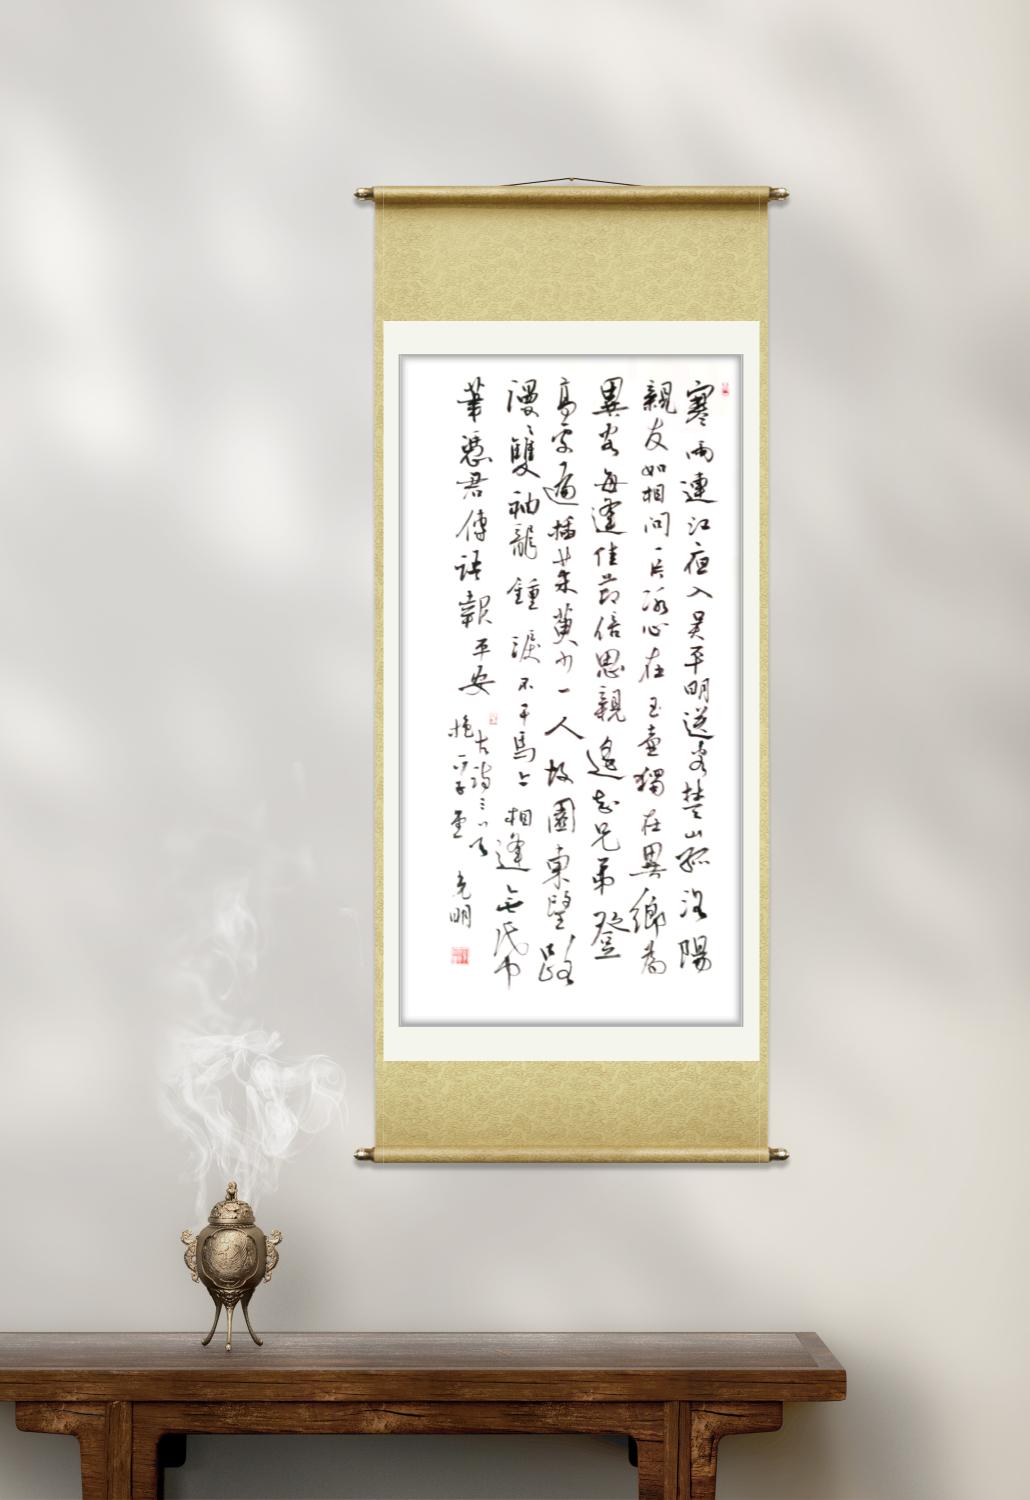 寒雨連江夜入吳平明送客楚山孤洛陽
親友如相問一片冰心在玉壺獨在異鄉為
異客每逢佳節倍思親遙知兄弟登
高處遍插茱萸少一人故園東望路
漫〻雙袖龍鍾淚不干馬上相逢無帋
筆憑君傳語報平安
古詩三首
光明